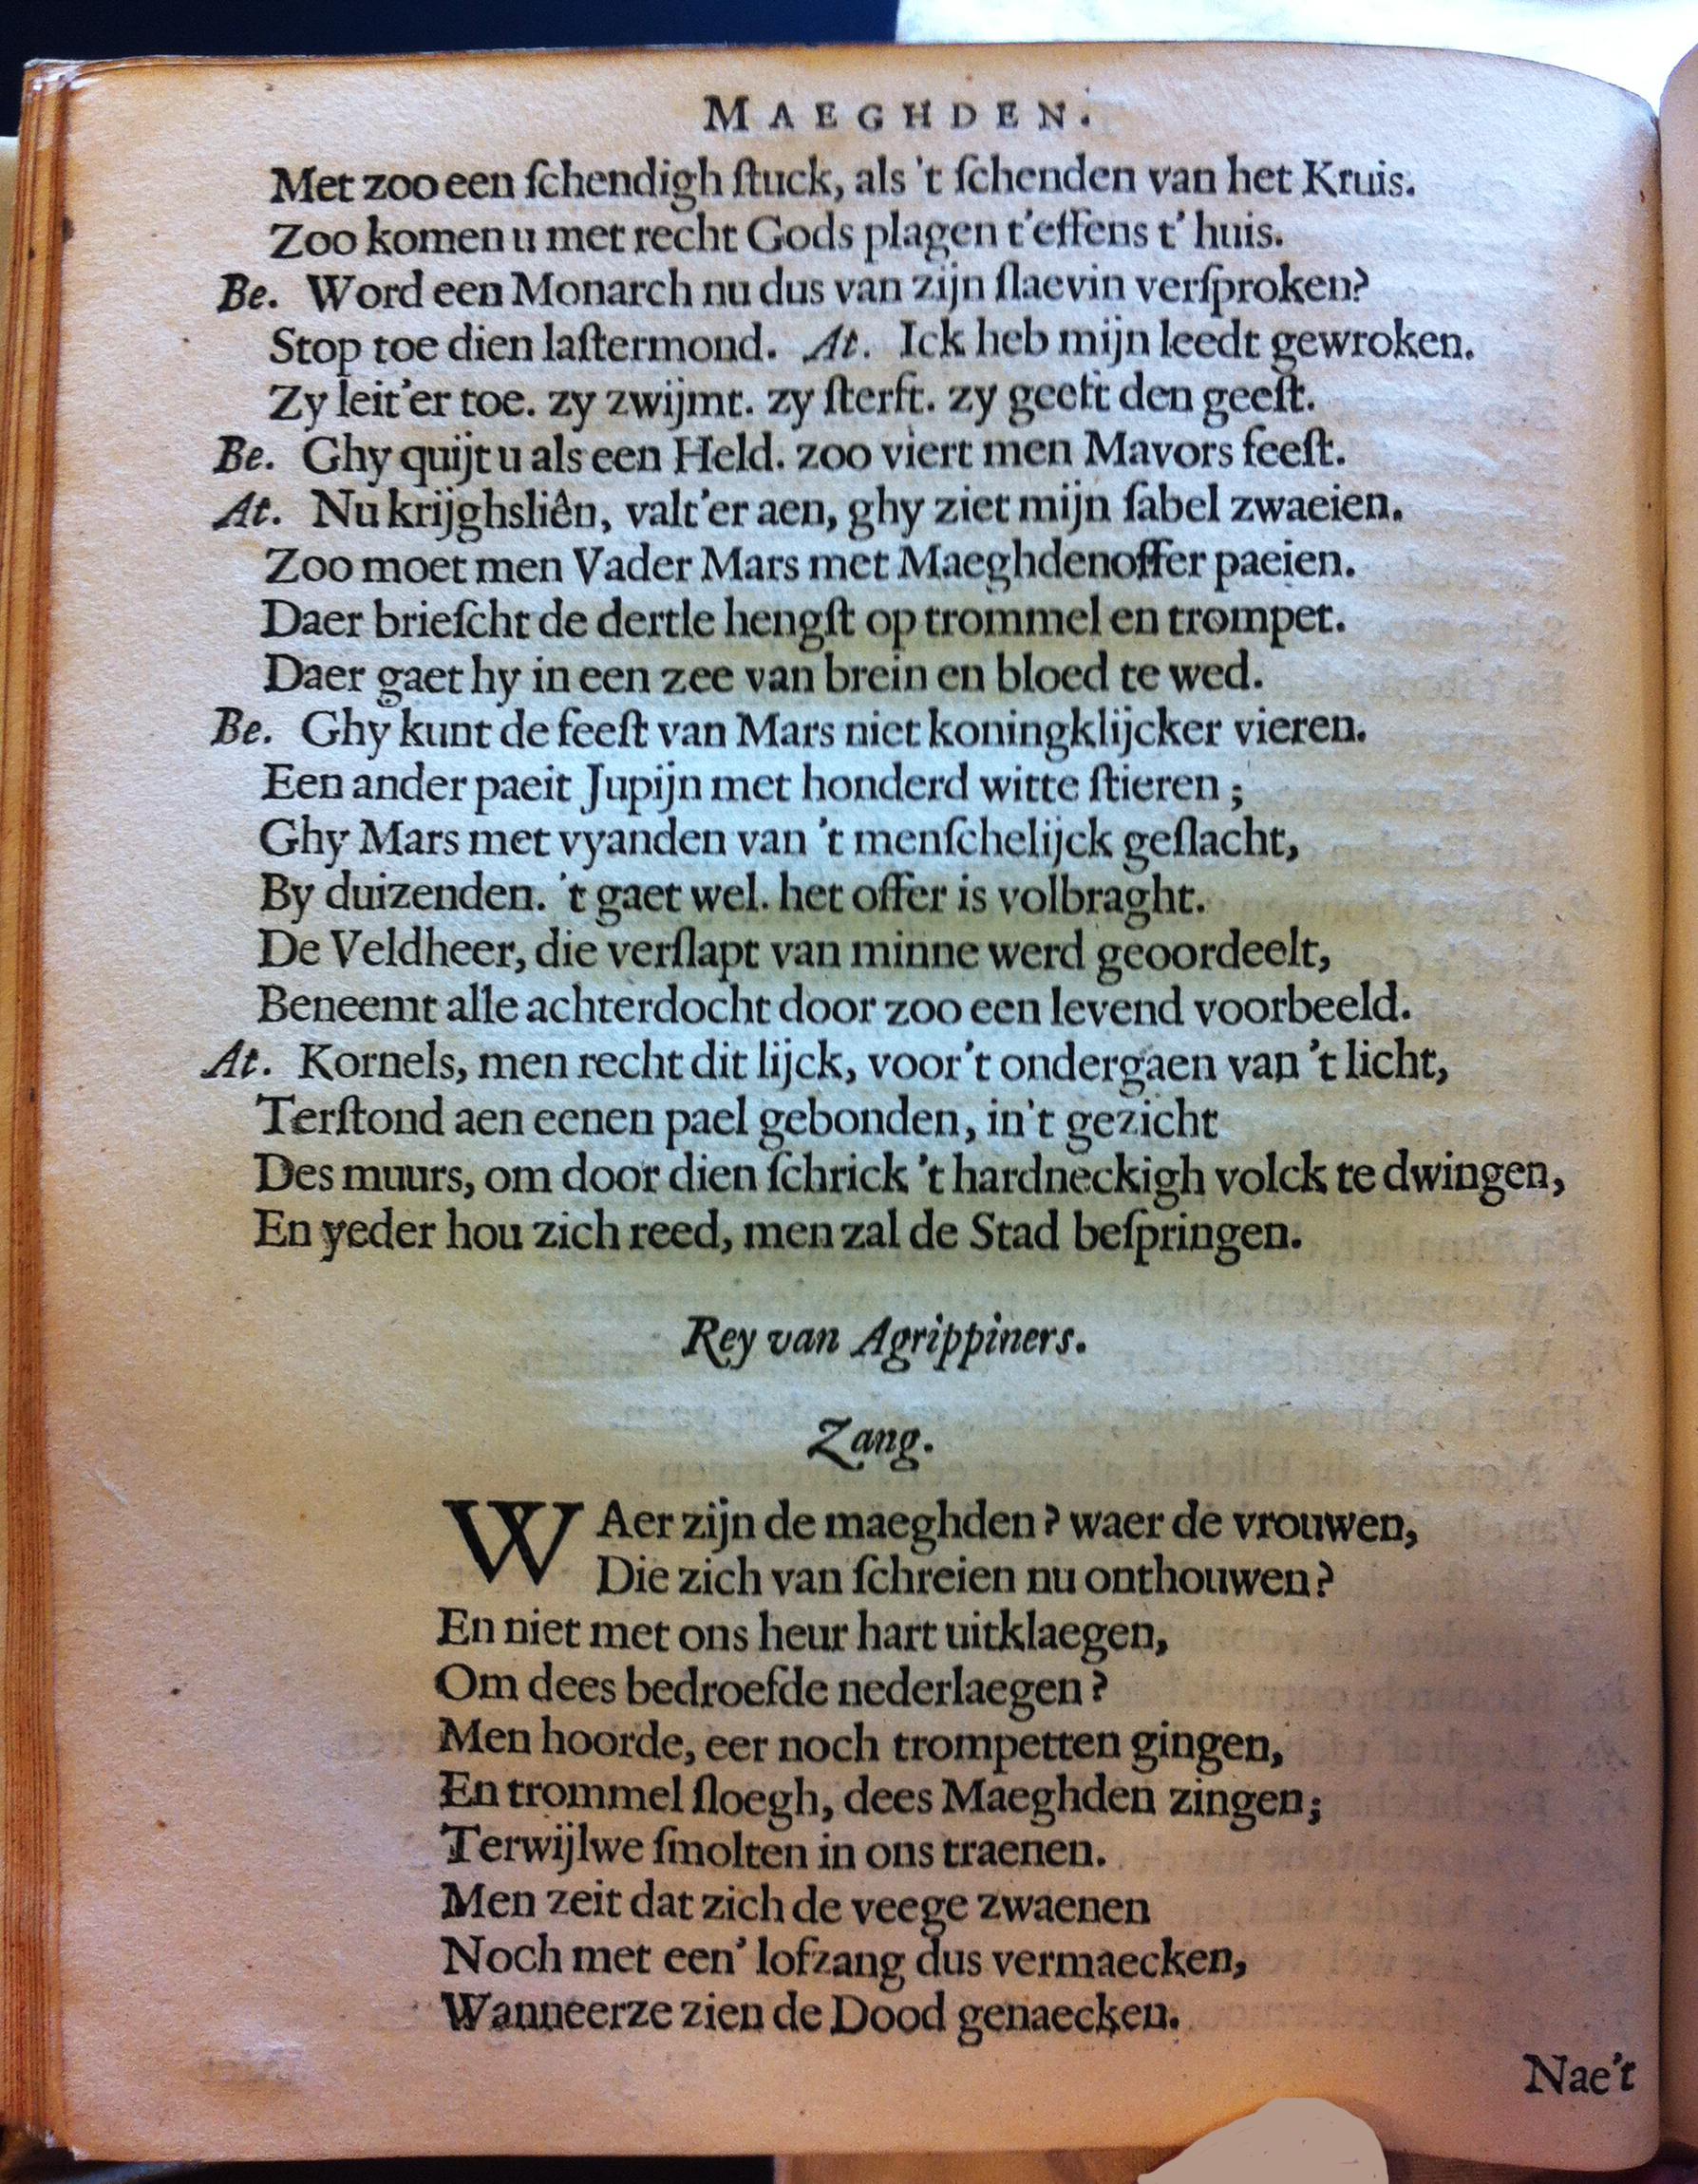 MAEGHDEN.
Met zoo een ſchendigh ſtuck, als 't ſchenden van het Kruis.
Zoo komen u met recht Gods plagen t'effens t' huis.
Be. Word een Monarch nu dus van zijn ſlaevin verſproken?
Stop toe dien laſtermond. At. Ick heb mijn leedt gewroken.
Zy leit'er toe. zy zwijmt. zy ſterft. zy geeft den geeſt.
Be. Ghy quijt u als een Held. zoo viert men Mavors feeſt.
At. Nu krijghsliên, valt'er aen, ghy ziet mijn ſabel zwaeien.
Zoo moet men Vader Mars met Maeghdenoffer paeien.
Daer brieſcht de dertle hengſt op trommel en trompet.
Daer gaet hy in een zee van brein en bloed te wed.
Be. Ghy kunt de feeſt van Mars niet koningklijcker vieren.
Een ander paeit Jupijn met honderd witte ſtieren;
Ghy Mars met vyanden van 't menſchelijck geſlacht,
By duizenden. 't gaet wel. het offer is volbraght.
De Veldheer, die verſlapt van minne werd geoordeelt,
Beneemt alle achterdocht door zoo een levend voorbeeld.
At. Kornels, men recht dit lijck, voor't ondergaen van 't licht,
Terſtond aen eenen pael gebonden, in't gezicht
Des muurs, om door dien ſchrick 't hardneckigh volck te dwingen,
En yeder hou zich reed, men zal de Stad beſpringen.
Rey van Agrippiners.
Zang.
WAer zijn de maeghden? waer de vrouwen,
Die zich van ſchreien nu onthouwen?
En niet met ons heur hart uitklaegen,
Om dees bedroefde nederlaegen?
Men hoorde, eer noch trompetten gingen,
En trommel ſloegh, dees Maeghden zingen;
Terwijlwe ſmolten in ons traenen.
Men zeit dat zich de veege zwaenen
Noch met een' lofzang dus vermaecken,
Wanneerze zien de Dood genaecken.
Nae't